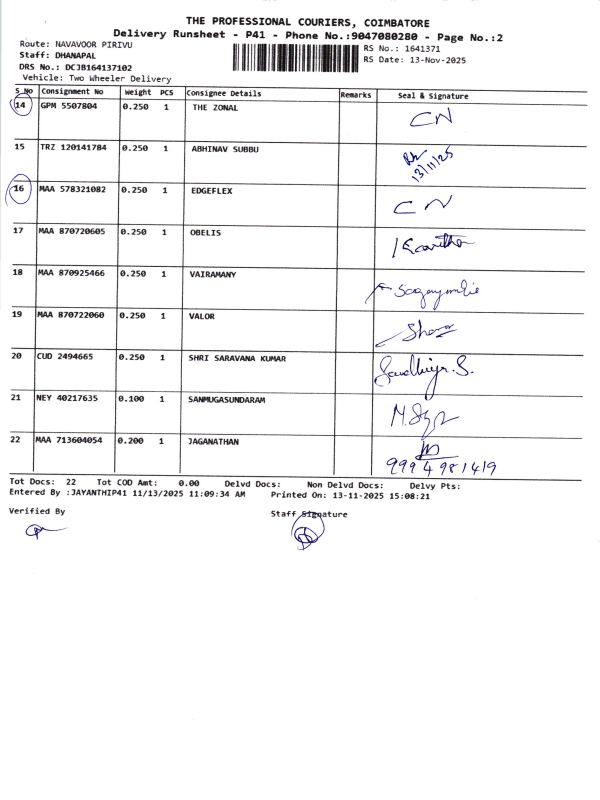 THE PROFESSIONAL COURIERS, COIMBATORE
Delivery Runsheet - P41 - Phone No.:9047080280 - Page No.:2
Route: NAVAVOOR PIRIVU
RS No.: 1641371
Staff: DHANAPAL
RS Date: 13-Nov-2025
DRS No.: DCJB164137102
Vehicle: Two Wheeler Delivery
S No Consignment No Weight PCS Consignee Details Remarks Seal & Signature
14 GPM 5507804 0.250 1 THE ZONAL CN
15 TRZ 120141784 0.250 1 ABHINAV SUBBU 13/11/25
16 MAA 578321082 0.250 1 EDGEFLEX CN
17 MAA 870720605 0.250 1 OBELIS
18 MAA 870925466 0.250 1 VAIRAMANY
19 MAA 870722060 0.250 1 VALOR
20 CUD 2494665 0.250 1 SHRI SARAVANA KUMAR
21 NEY 40217635 0.100 1 SANMUGASUNDARAM
22 MAA 713604054 0.200 1 JAGANATHAN 9994981419
Tot Docs: 22 Tot COD Amt: 0.00 Delvd Docs: Non Delvd Docs: Delvy Pts:
Entered By :JAYANTHIP41 11/13/2025 11:09:34 AM Printed On: 13-11-2025 15:08:21
Verified By
Staff Signature